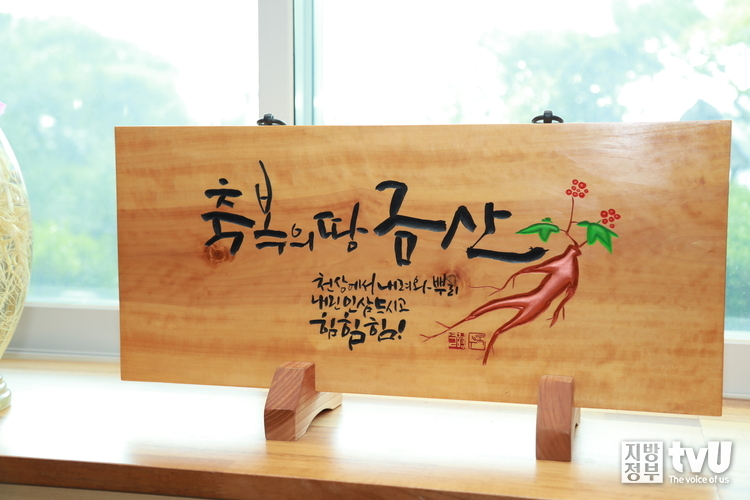 축복의 땅 금산
천상에서 내려와 뿌리
내린 인삼 드시고
힘힘힘!
지방
정부
tvU
The voice of us